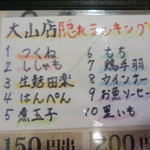 大山店隠れランキング
1 つくね
2 ししゃも
3 生麩田楽
4 はんぺん
5 煮玉子
6 もち
7 鶏手羽
8 ウインナー
9 お魚ソーセージ
10 里いも
150円串
200円